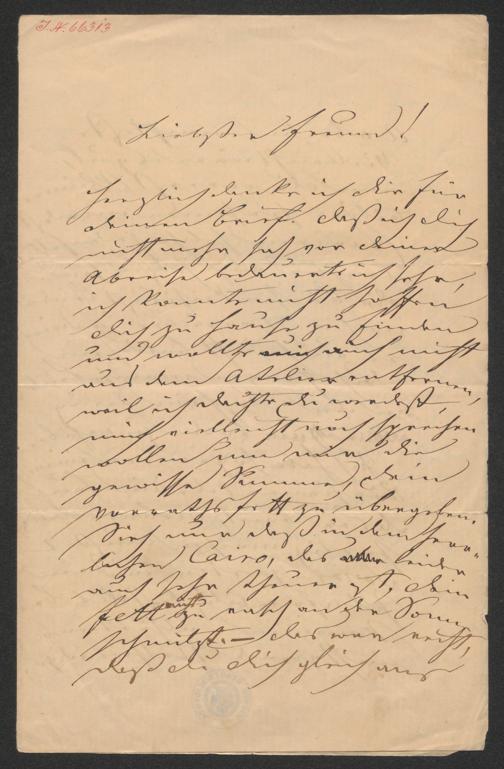 I.N. 66313
Liebster Freund!
Herzlich danke ich dir für
deinen Brief. daß ich dich
nicht mehr sah vor deiner
Abreise bedauerte ich sehr,
ich konnte nicht hoffen
dich zu Hause zu finden
und wollte mich auch nicht
aus dem Atelier entfernen,
weil ich dachte du werdest,
mich vielleicht noch sprechen
wollen um mir die
gewisse Summe, dein
vorrathsfett zu übergeben.
Sieh nur daß in dem herr-
lichen Cairo, das leider
auch sehr theuer ist, dein
Fett nicht zu rasch an der Sonne
schmilzt. — das war recht,
daß du dich gleich aus